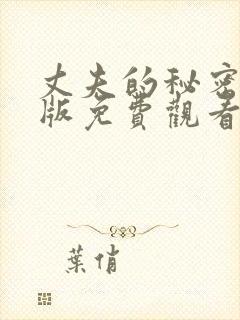 丈夫的秘密
版免費觀看
葉俏